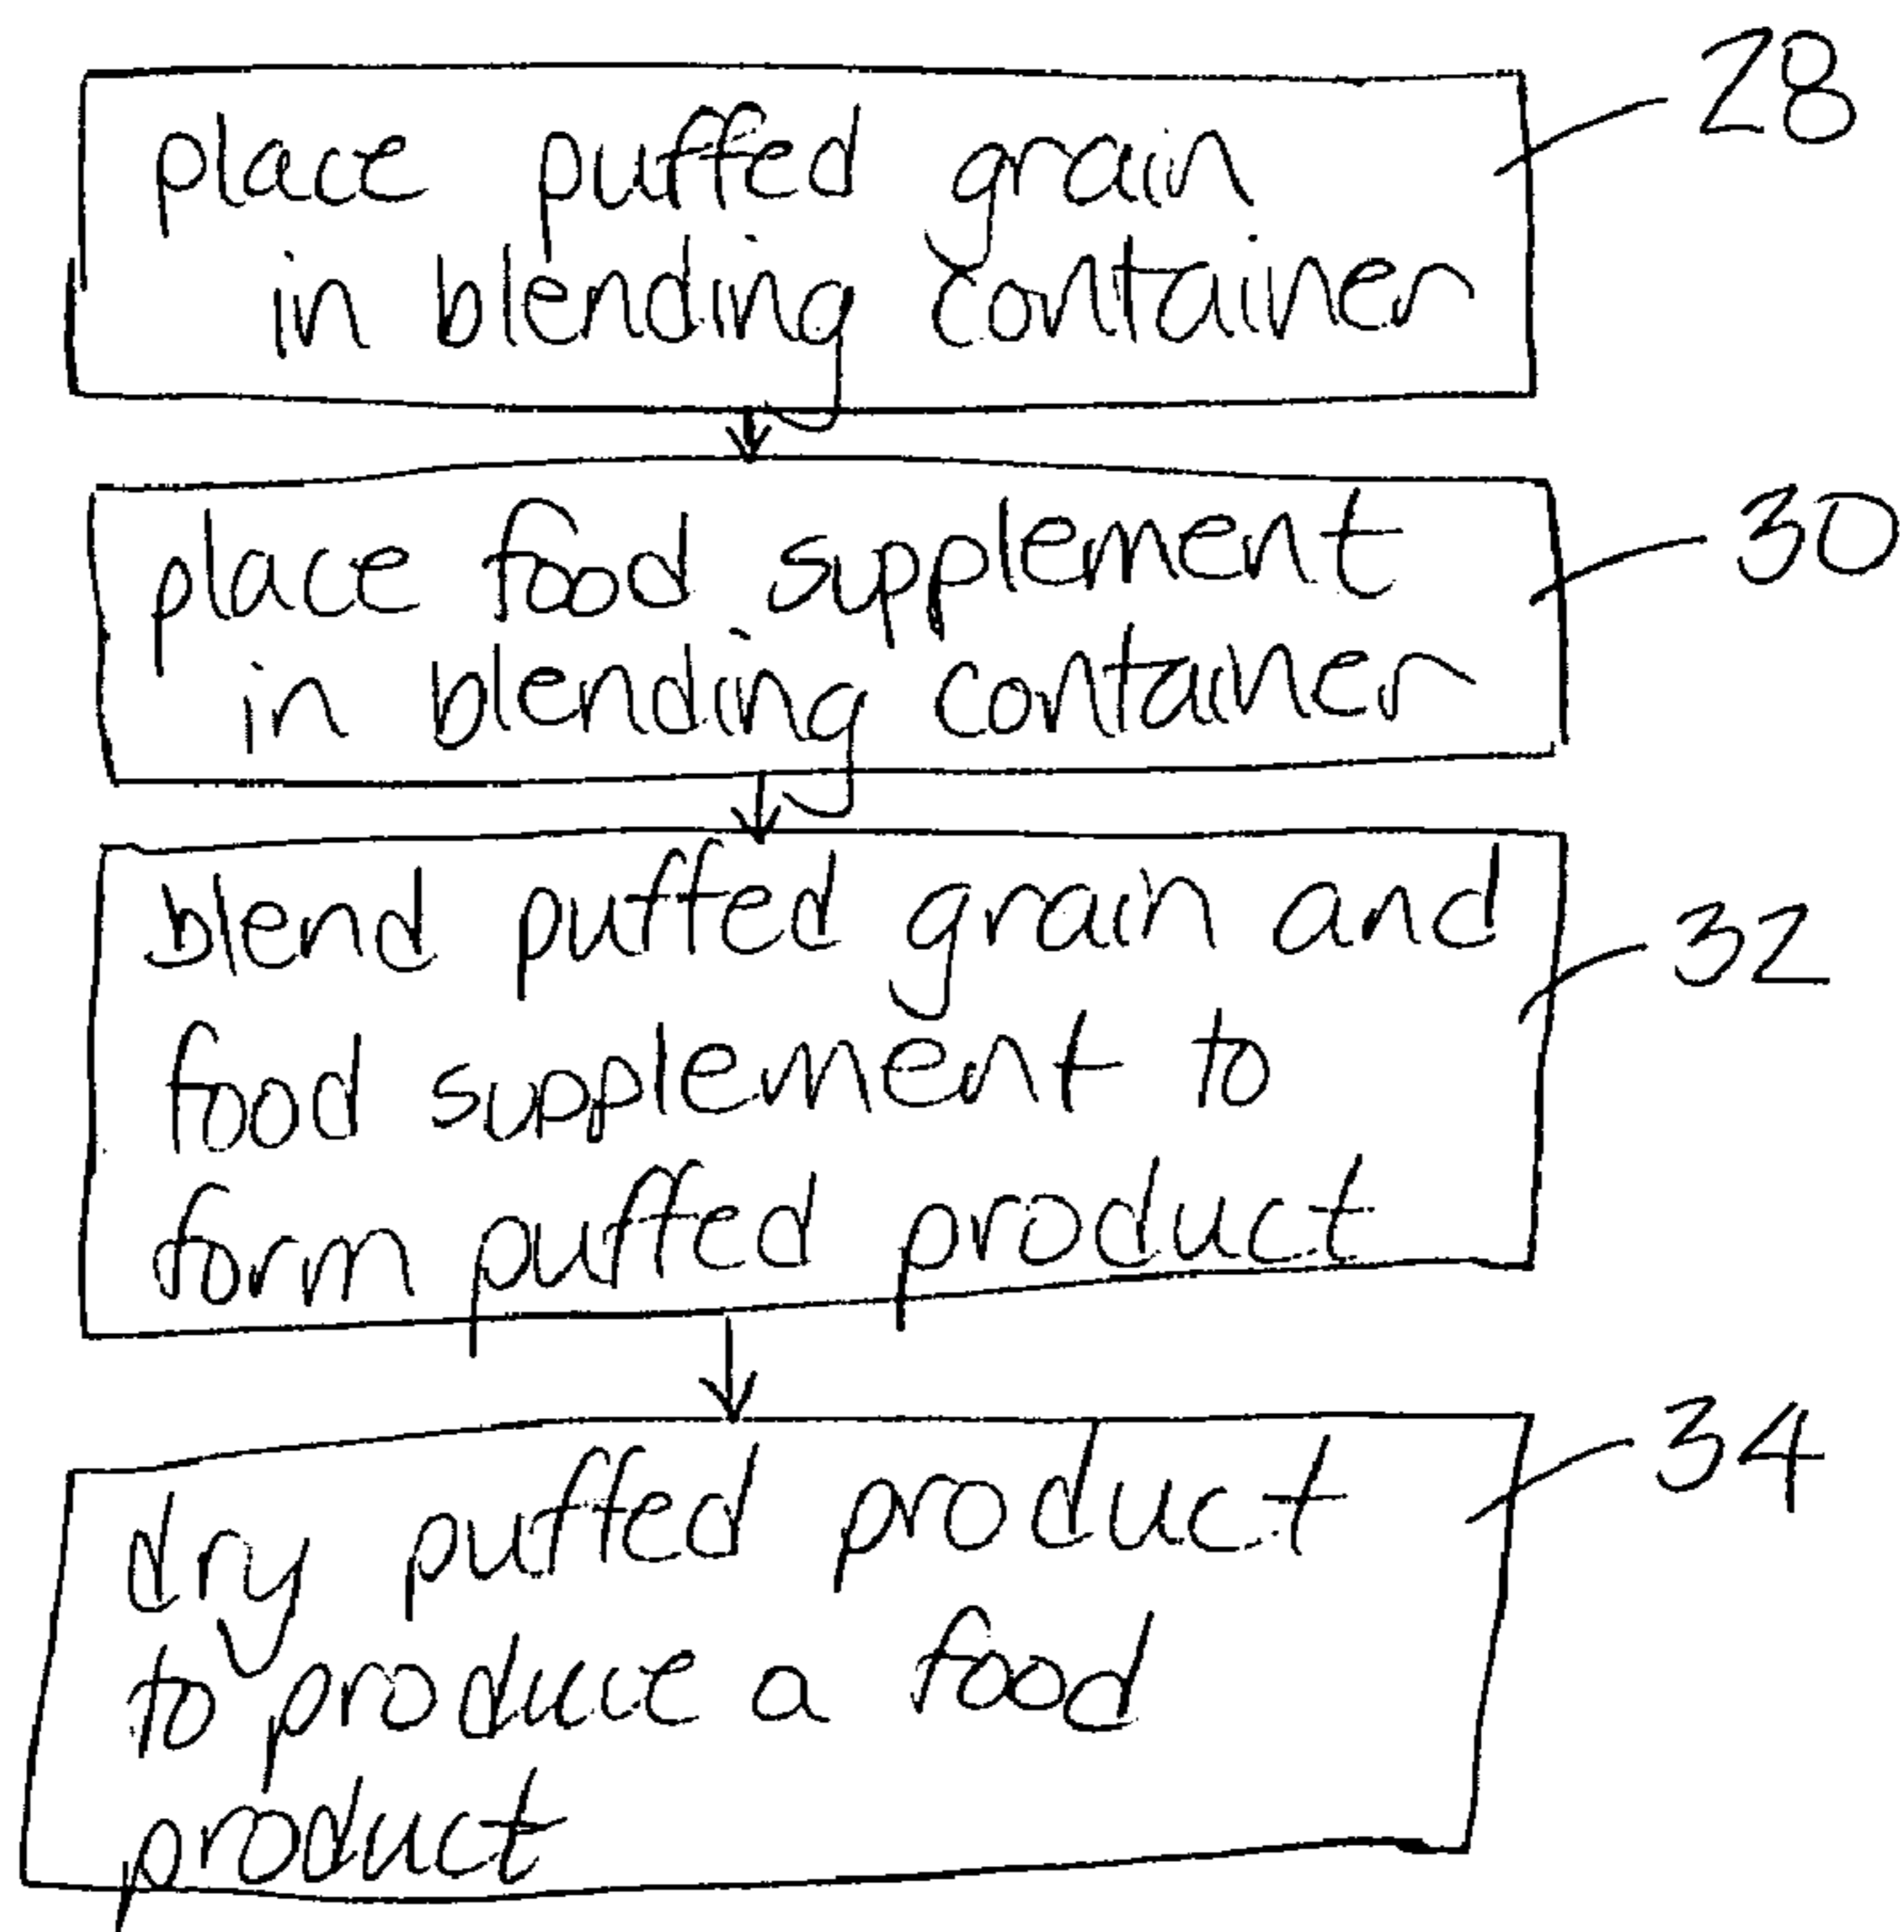 place puffed grain
in blending container
28
place food supplement
in blending container
30
blend puffed grain and
food supplement to
form puffed product
32
dry puffed product
to produce a food
product
34